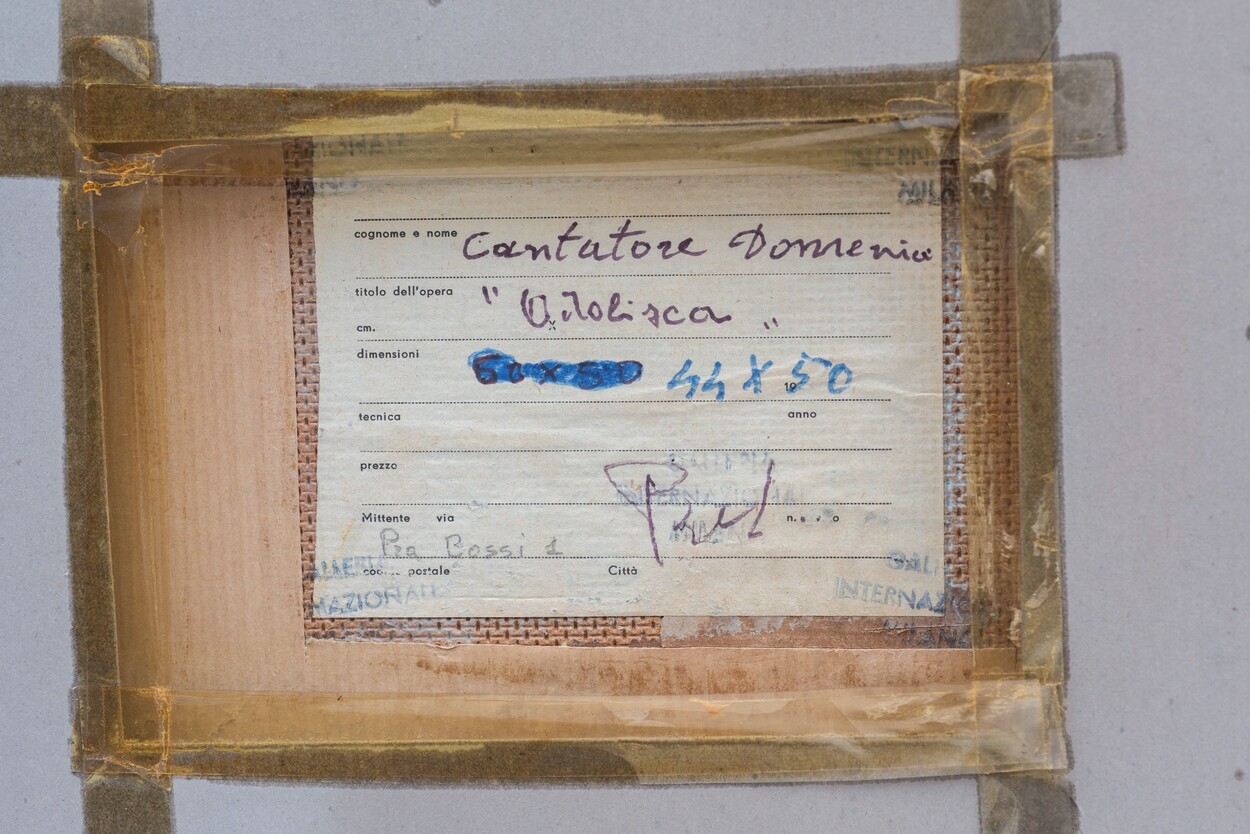 MILA
cognome e nome Cantatore Domenico
titolo dell'opera " Odolisca "
cm.
dimensioni 50 x 50 44 X 50
19
tecnica anno
prezzo
INTERNAZIONALE
MILANO
Mittente via
Pza Bossi 1
postale Città
GALLERIA
NAZIONALE
GALL
INTERNAZIO
MILANO